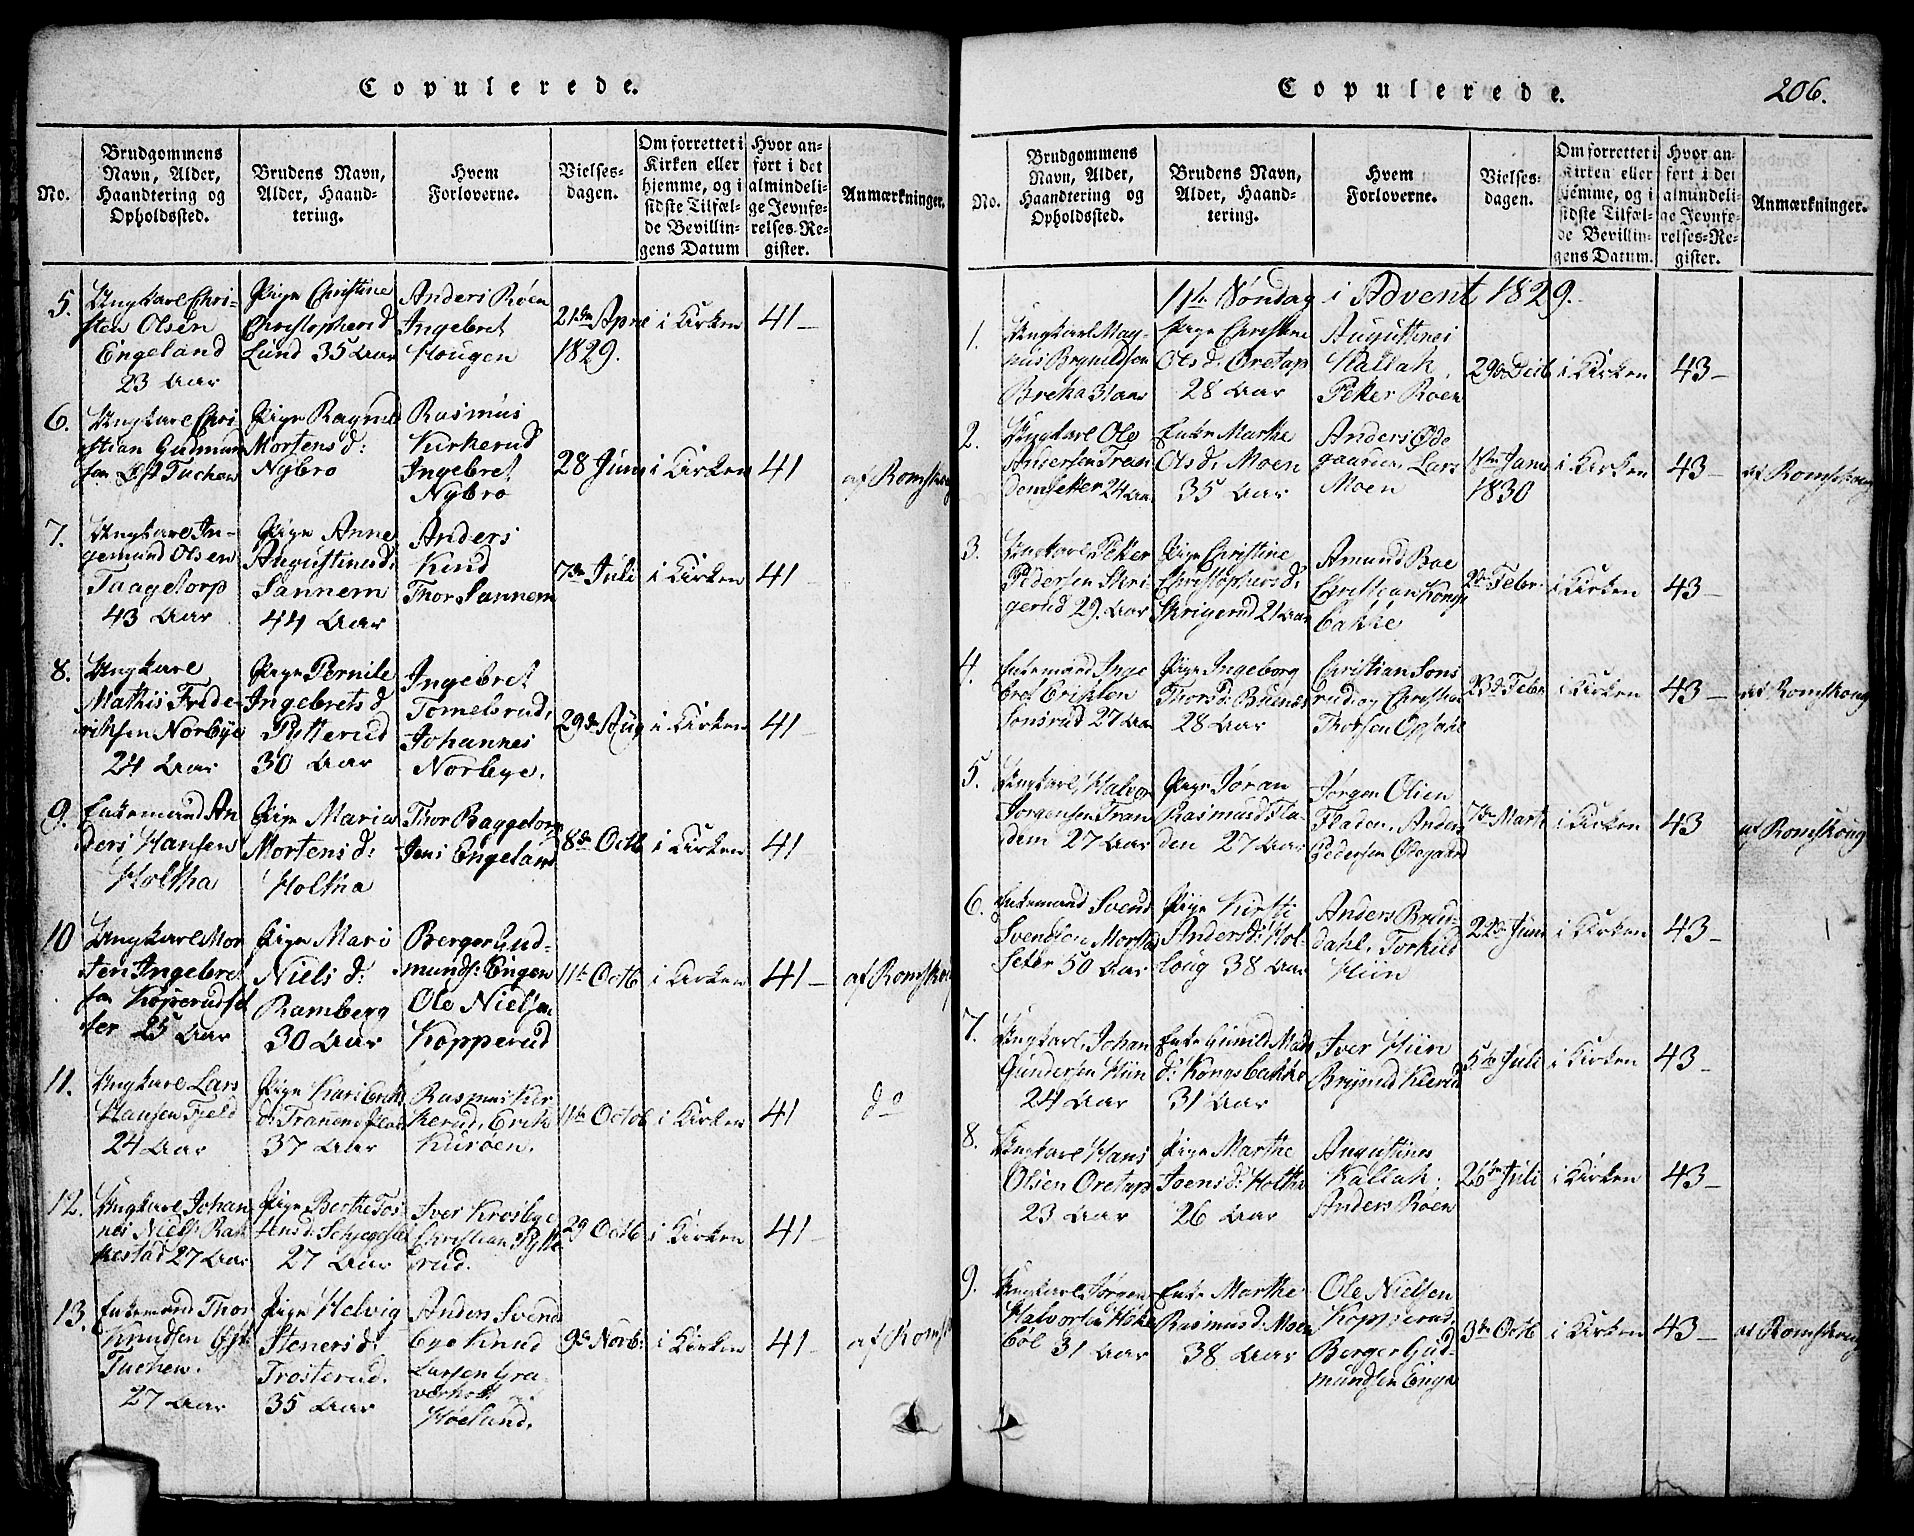 Copulerede.
No.
Brudgommens
Navn, Alder,
Haandtering og
Opholdssted.
Brudens Navn,
Alder, Haand-
tering.
Hvem
Forloverne.
Vielses-
dagen.
Om forrettet i
Kirken eller
hjemme, og i
sidste Tilfæl-
de Bevillin-
gens Datum
Hvor an-
ført i det
almindeli-
ge Jevnfø-
relses-Re-
gister.
Anmærkninger.
5.
Ungkarl Chri-
sten Olsen
Engeland
23 Aar
Pige Christine
Christophersd
Lund 35 Aar
Anders Röen
Ingebret
Hougen
21de Apri
1829.
i Kirken
41 —
6.
Ungkarl Chri-
stian Gudmun
sen Øst Tuchen
Pige Ragnil
Mortensd:
Nybro
Rasmus
Kirkerud
Ingebret
Nybro
28 Juni
i Kirken
41
af Romskog
7.
Ungkarl In-
gemund Olsen
Taagetorp
43 Aar
Pige Anne
Augustinusd:
Sannem
44 Aar
Anders
Kind
Thor Sannem
7de Juli
i Kirken
41 —
8.
Ungkarl
Mathis Frede-
riksen Norbye
24 Aar
Pige Pernile
Ingebretsd
Pytterud
30 Aar
Ingebret
Tomelsrud,
Johannes
Norbye.
29de Aug
i Kirken
41 —
9.
Enkemand An
ders Hansen
Holtha
Pige Maria
Mortensd:
Holtha
Thor Baggetorp
Jens Engeland
8de Octb
i Kirken
41
10
Ungkarl Mor
ten Ingebret
sen Kopperudsæ
ter 25 Aar
Pige Mari
Niels d:
Ramberg
30 Aar
Berger Gud-
munds: Engen
Ole Nielsen
Kopperud
11te Octb
i Kirken
41 —
af Romskog
11.
Ungkarl Lars
Hansen Fjeld
24 Aar
Pige Kari Eriks
d:
37 Aar
Rasmus Kir
kerud, Erik
Kuröen.
11te Octob
i Kirken
41
do
12.
Ungkarl Johan
nes Niels: Rak
kestad 27 Aar
Pige Berthe Tos
tensd:
27 Aar
Iver Krosbye
Christian Pytte
rud.
29 Octb
i Kirken
41 —
13.
Enkemand Thor
Knudsen Øst
Tuchen.
27 Aar
Pige Helvig
Stenersd:
Trosterud.
35 Aar
Anders Svend
bye Knud
Larsen Gra-
verholt af
Höeland.
9de Novb:
i Kirken
41 —
af Roms
Copulerede.
206.
No.
Brudgommens
Navn, Alder,
Haandtering og
Opholdssted.
Brudens Navn,
Alder, Haand-
tering.
Hvem
Forloverne.
Vielses-
dagen.
Om forrettet i
Kirken eller
hjemme, og i
sidste Tilfæl-
de Bevillin-
gens Datum.
Hvor an-
ført i det
almindeli-
ge Jevnfø-
relses-Re-
gister.
Anmærkninger.
1ste Söndag i Advent 1829.
1.
Ungkarl Mag-
nus Brynildsen
Brekka 31 Aar
Pige Christine
Olsd. Oretap
28 Aar
Augustinus
Kallak,
Peter Roen
29de Decb
i Kirken
43 —
2.
Ungkarl Ole
Andersen Tran
demsæter 24 Aar
Enke Marthe
Olsd: Moen
35 Aar
Anders Øde
gaarden Lars
Moen
1ste Janu
1830
i Kirken
43 —
af Romskoug
3.
Ungkarl Peter
Pedersen Skri
gerud 29. Aar
Pige Christine
Christophersd:
Skrigerud 21 Aar
Amund Boe
Christian Kongs
bakke
2de Febr.
i Kirken
43 —
4.
Enkemand Inge
bret Eriksen
Sonsrud 27 Aar
Pige Ingeborg
Thorsd:
28 Aar
Christian Sons
rud, og Christian
Thorsen Opsahl
23de Febr
i Kirken
43 —
af Romskoug
5.
Ungkarl, Halvor
Jorgensen Tran
dem 27 Aar
Pige Jöran
Rasmusd Fla-
den 27 Aar
Jörgen Olsen
Fladen, Anders
Pedersen Ødegaard
7de Marts
i Kirken
43
af Romskoug
6.
Enkemand Svend
Svendsen Morsta
seter 50 Aar
Pige Kirsti
Andersd: Hol-
loug 38 Aar
Anders Bru-
dahl, Torkild
Hiin
24de Juni
i Kirken
43 —
7.
Ungkarl, Johan
Gundersen Hiin
24 Aar
Enke Gunild Mads
d: Kongsbakke
31 Aar
Iver Hiin
Brynild Klerud
5te Juli
i Kirken
43 —
8.
Ungkarl Hans
Olsen Oretap
23 Aar
Pige Marthe
Joensd: Holtha
26 Aar
Augustines
Kallak,
Anders Röen
26de Juli
i Kirken
43 —
9.
Ungkarl, Jörgen
Halvorsen Hake
böl 31 Aar
Enke Marthe
Rasmusd. Moen
38 Aar
Ole Nielsen
Kopperud,
Berger Gud-
mundsen Enge
3de Octb
i Kirken
43 —
af Romskoug